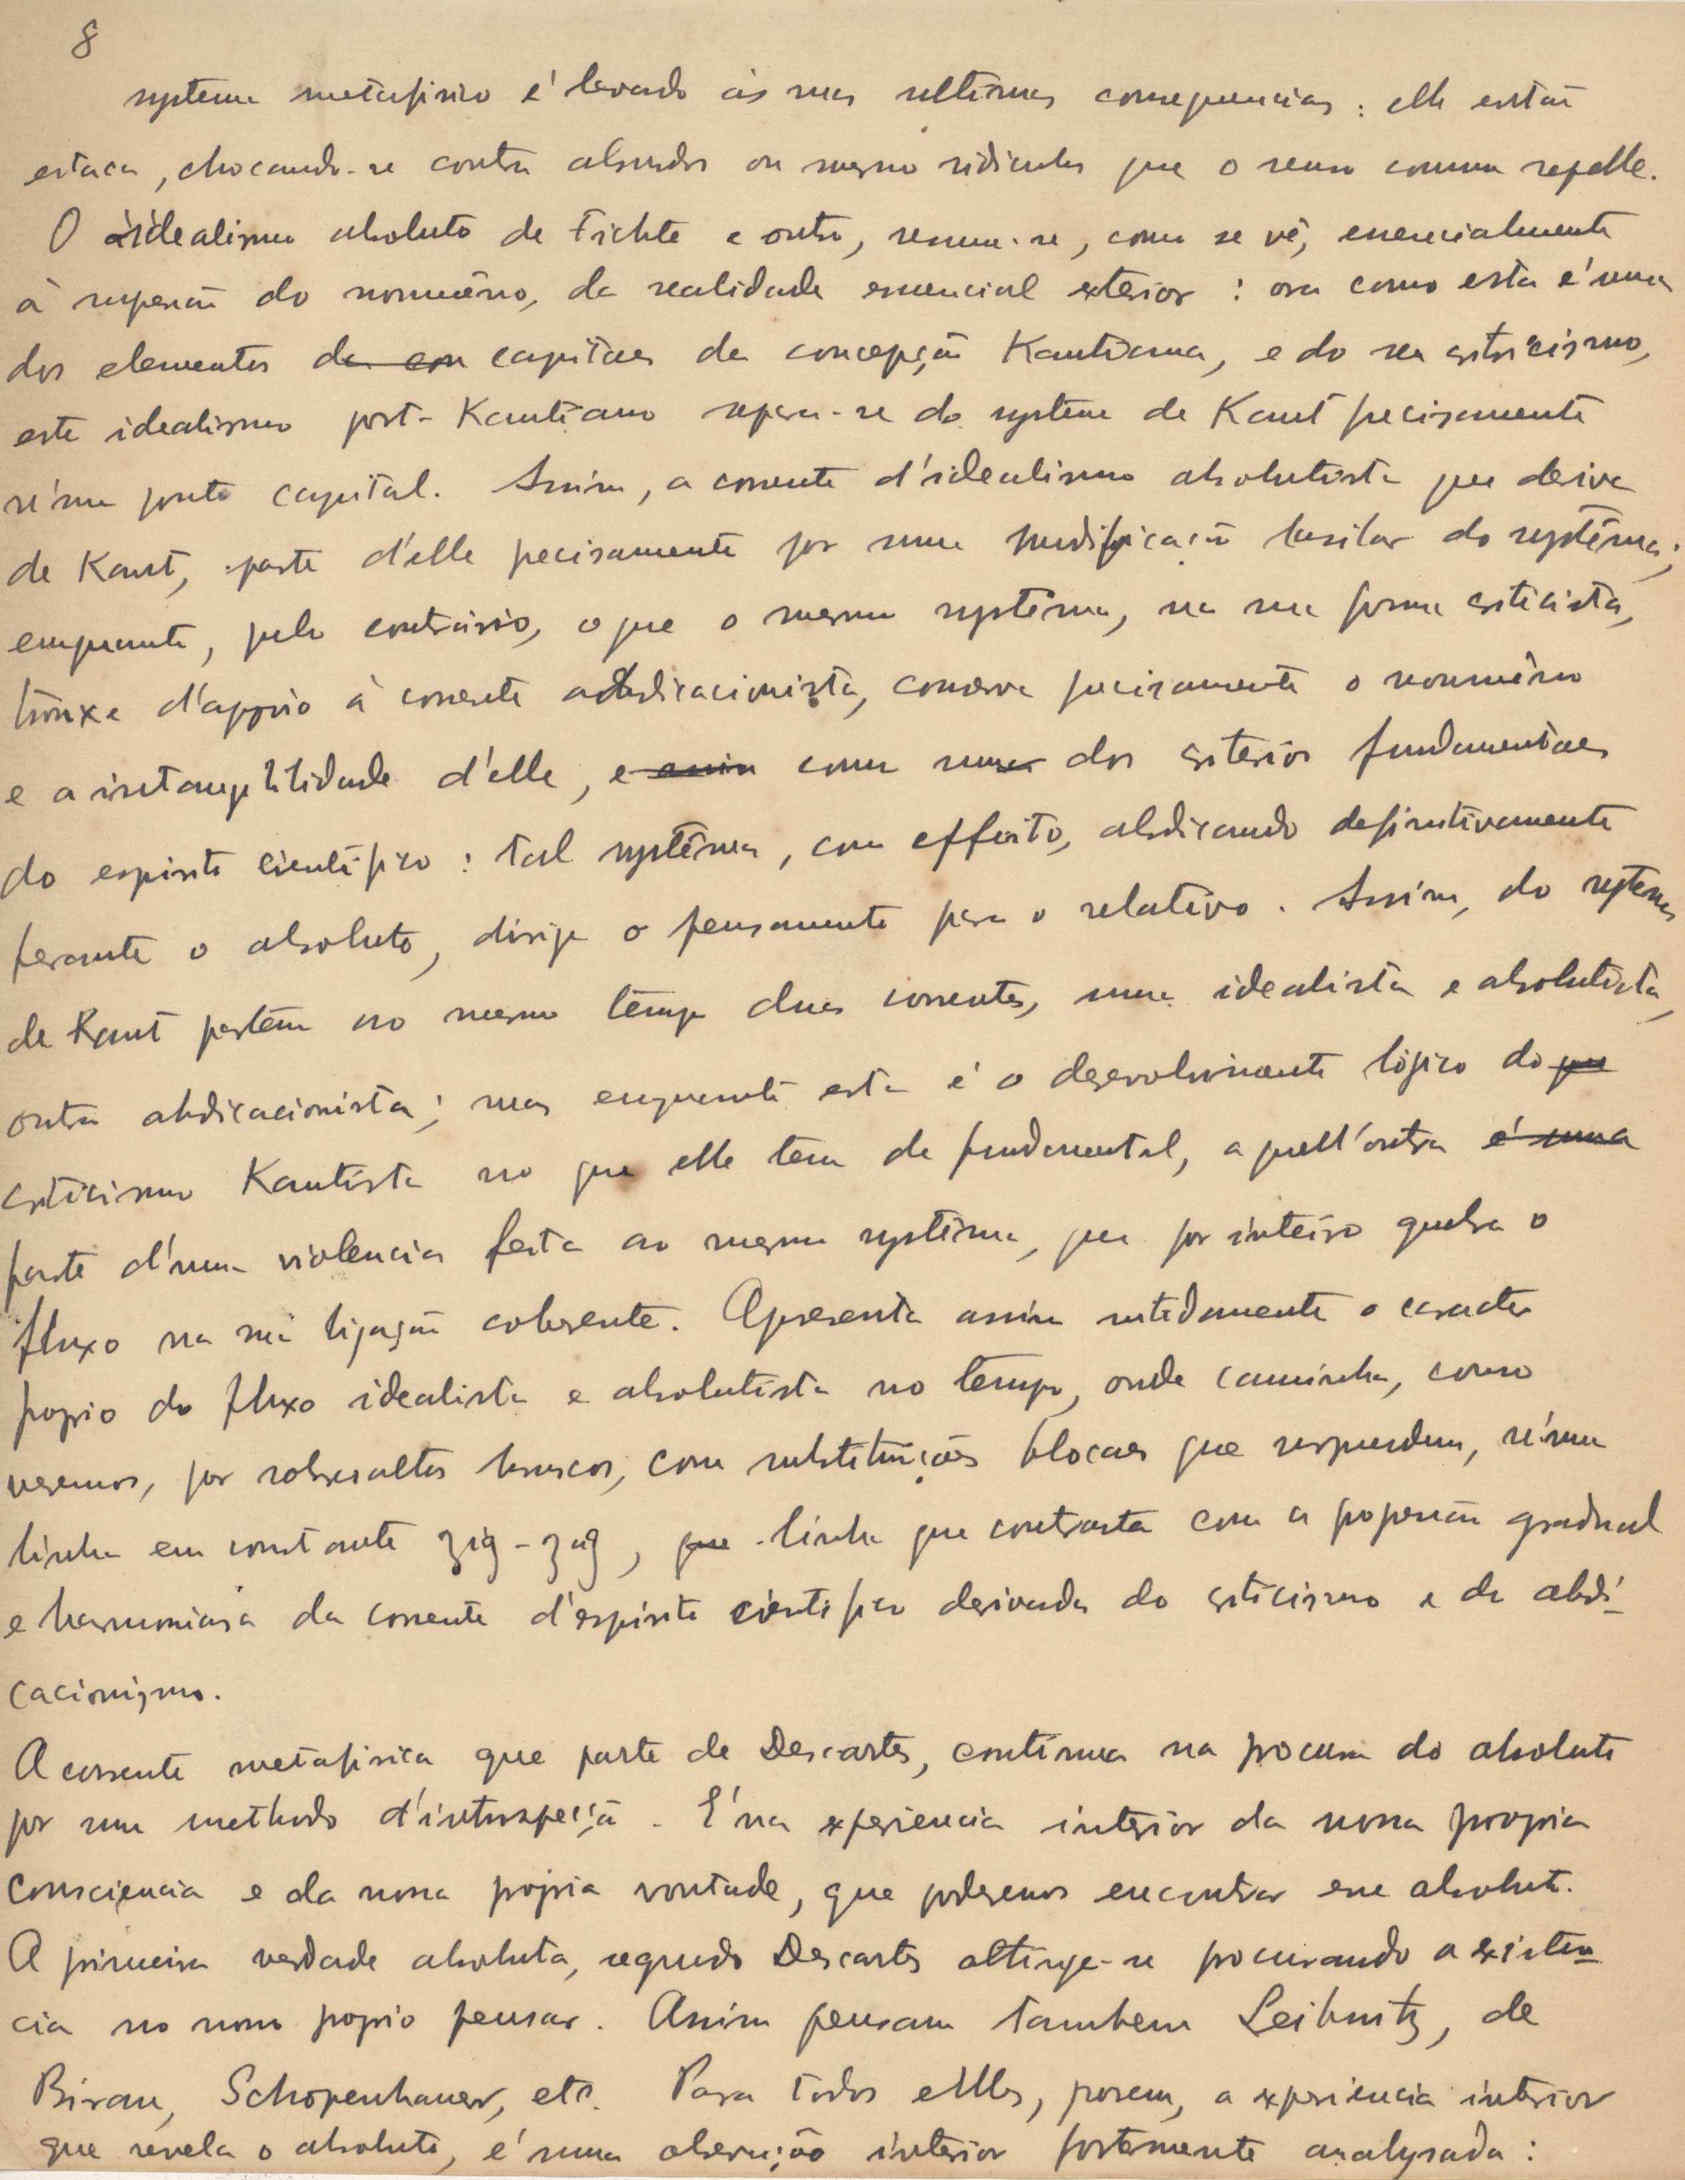 8
systema metafisico é levado ás suas ultimas consequencias: elle então
estaca, chocando-se contra absurdos ou mesmo ridiculos que o senso commum repelle.
O idealismo absoluto de Fichte e outros, resume-se, como se vê, essencialmente
á supressão do noumêno, da realidade essencial exterior: ora como esta é uma
dos elementos da con capitaes da concepção Kantiana, e do seu criticismo,
este idealismo post-Kantiano separa-se do systema de Kant precisamente
n'um ponto capital. Assim, a corrente d'idealismo absolutista que deriva
de Kant, parte d'elle precisamente por uma modificação basilar do systêma;
emquanto, pelo contrário, o que o mesmo systêma, na sua forma criticista,
trouxe d'appoio á corrente abdicacionista, conserva precisamente o noumêno
e a intangibilidade d'elle, e assim como um dos criterios fundamentaes
do espirito cientifico: tal systêma, com effeito, abdicando definitivamente
perante o absoluto, dirige o pensamento para o relativo. Assim, do systema
de Kant partem ao mesmo tempo duas correntes, uma idealista e absolutista,
outra abdicacionista; mas emquanto esta é o desenvolvimento lógico do que
criticismo Kantista no que elle tem de fundamental, aquell'outra é uma
parte d'uma violencia feita ao mesmo systêma, que por inteiro quebra o
fluxo na sua ligação coherente. Apresenta assim nitidamente o caracter
proprio do fluxo idealista e absolutista no tempo, onde caminha, como
veremos, por sobresaltos bruscos, com substituições blocaes que surpreendem, n'uma
linha em constante zig-zag, que linha que contrasta com a progressão gradual
e harmoniosa da corrente d'espirito cientifico derivada do criticismo e do abdi-
cacionismo.
A corrente metafisica que parte de Descartes, continua na procura do absoluto
por um methodo d'introspeção. É na experiencia interior da nossa propria
consciencia e da nossa propria vontade, que poderemos encontrar esse absoluto.
A primeira verdade absoluta, segundo Descartes attinge-se procurando a existen-
cia no nosso proprio pensar. Assim pensam tambem Leibnitz, de
Biran, Schopenhauer, etc. Para todos elles, porem, a experiencia interior
que revela o absoluto, é uma observação interior fortemente analysada: